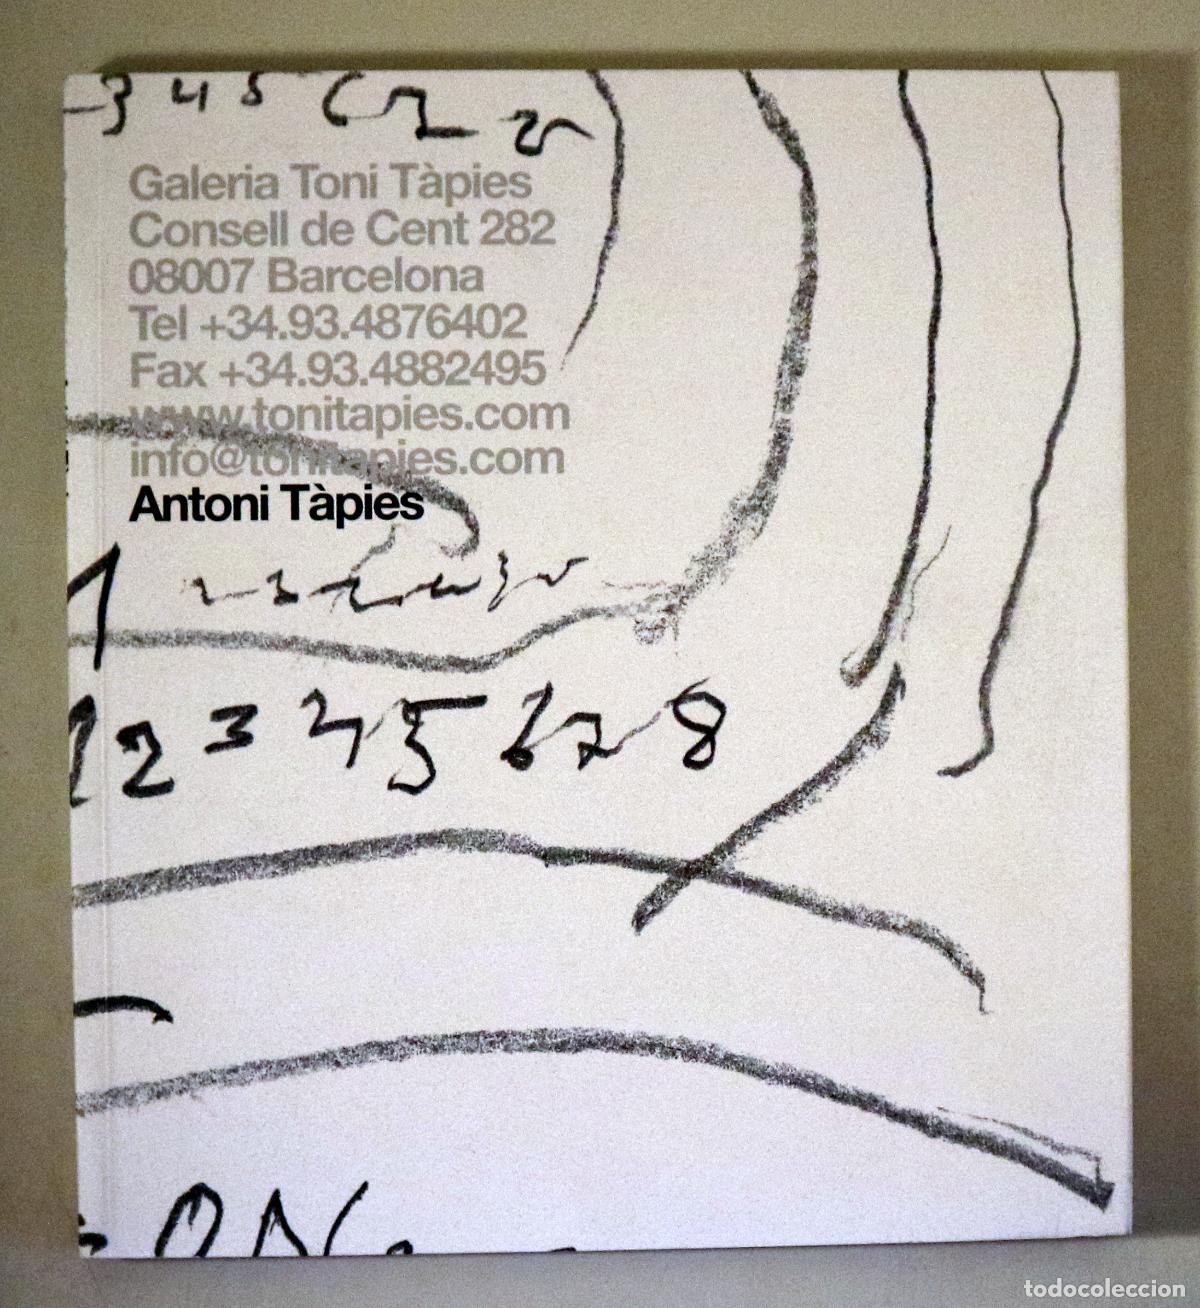 3 4 5 6 7
Galeria Toni Tàpies
Consell de Cent 282
08007 Barcelona
Tel +34.93.4876402
Fax +34.93.4882495
www.tonitapies.com
info@tonitapies.com
Antoni Tàpies
1 2 3 4 5 6 7 8
todocoleccion